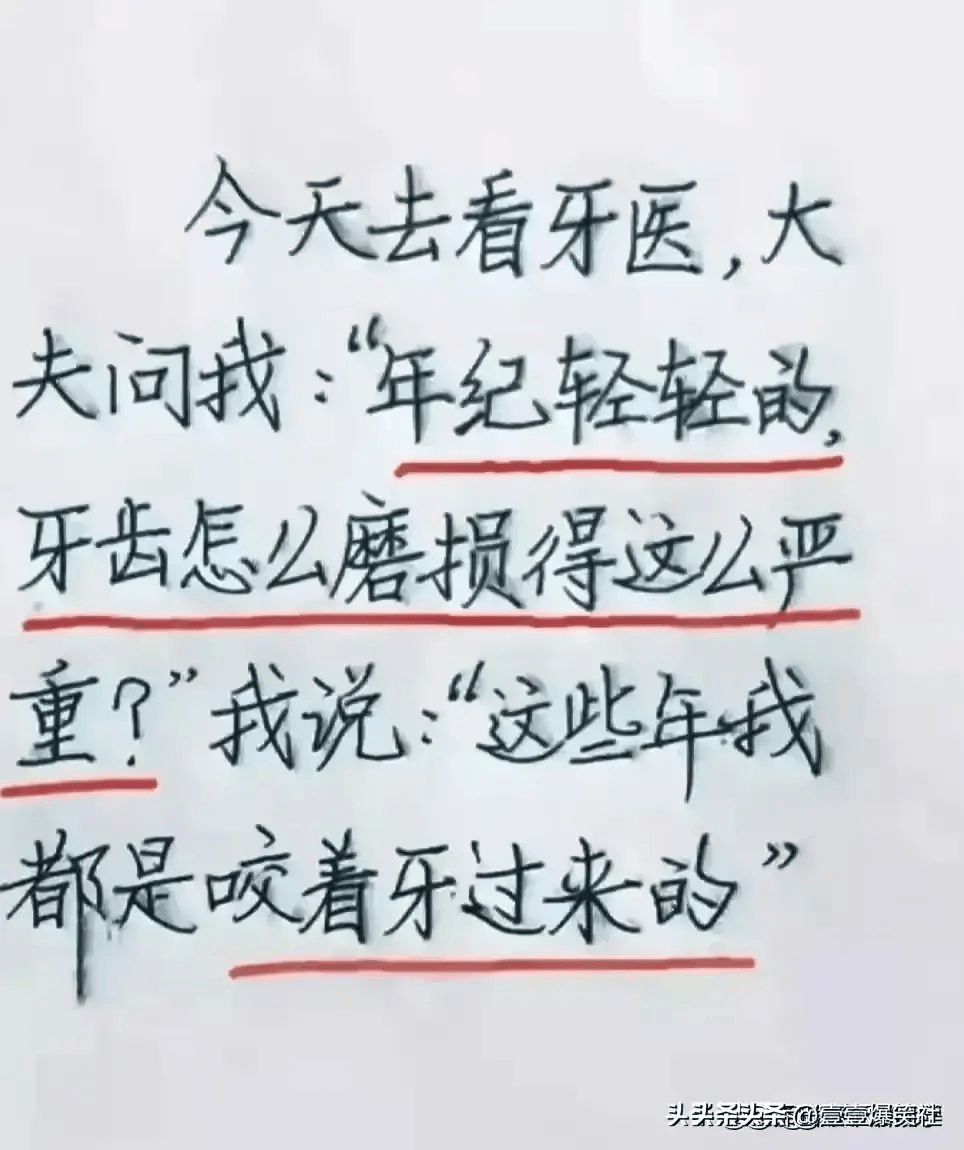 今天去看牙医,大
夫问我:“年纪轻轻的,
牙齿怎么磨损得这么严
重?”我说:“这些年我
都是咬着牙过来的”
头条 @壹壹爆笑社